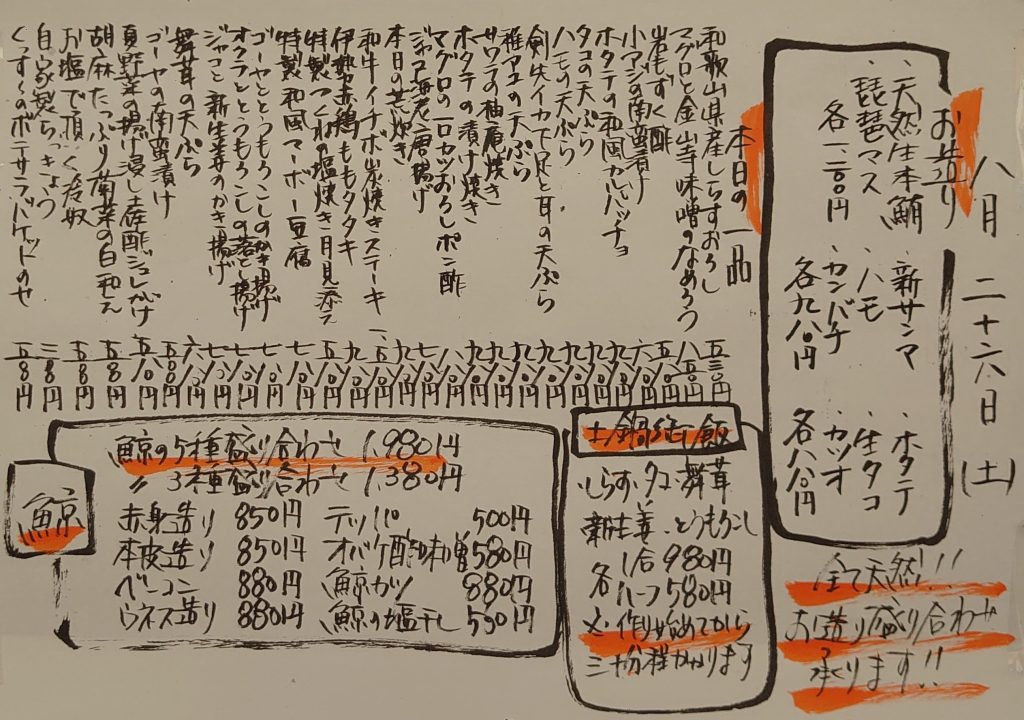 八月二十六日(土)
お造り
・天然生本鮪
・琵琶マス
各一、二〇〇円
・新サンマ
・ハモ
・カンパチ
各九八〇円
・ホタテ
・生タコ
・カツオ
各八八〇円
全て天然!!
お造り盛り合わせ
承ります!!
本日の一品
和歌山県産しらすおろし 五三〇円
マグロと金山寺味噌のなめろう 八五〇円
岩もずく酢 五八〇円
小アジの南蛮漬け 六八〇円
ホタテの和風カルパッチョ
タコの天ぷら
ハモの天ぷら
剣先イカ下足と耳の天ぷら
稚アユの天ぷら
サワラの柚庵焼き
ホタテの漬け焼き
マグロの一口カツおろしポン酢
ジャコ海老唐揚げ
本日の荒炊き
和牛イチボ炭焼きステーキ
伊勢赤鶏ももタタキ
特製つくねの塩焼き月見添え
特製和風マーボー豆腐
ゴーヤととうもろこしのかき揚げ
オクラととうもろこしの落とし揚げ
ジャコと新生姜のかき揚げ
舞茸の天ぷら
ゴーヤの南蛮漬け
夏野菜の揚げ浸し土佐酢ジュレがけ
胡麻たっぷり菊菜の白和え
お塩で頂く冷奴
自家製らっきょう
くっすーのポテサラバケットのせ
土鍋ご飯
しらす・タコ・舞茸
新生姜・とうもろこし
各 1合 980円
ハーフ 580円
※作り始めてから
三十分程かかります
鯨
鯨の5種盛り合わせ 1,980円
〃 3種盛り合わせ 1,380円
赤身造り 850円
本皮造り 850円
ベーコン 880円
ウネス造り 880円
テッパロ 500円
オバケ酢味噌 580円
鯨カツ 880円
鯨の塩干し 590円